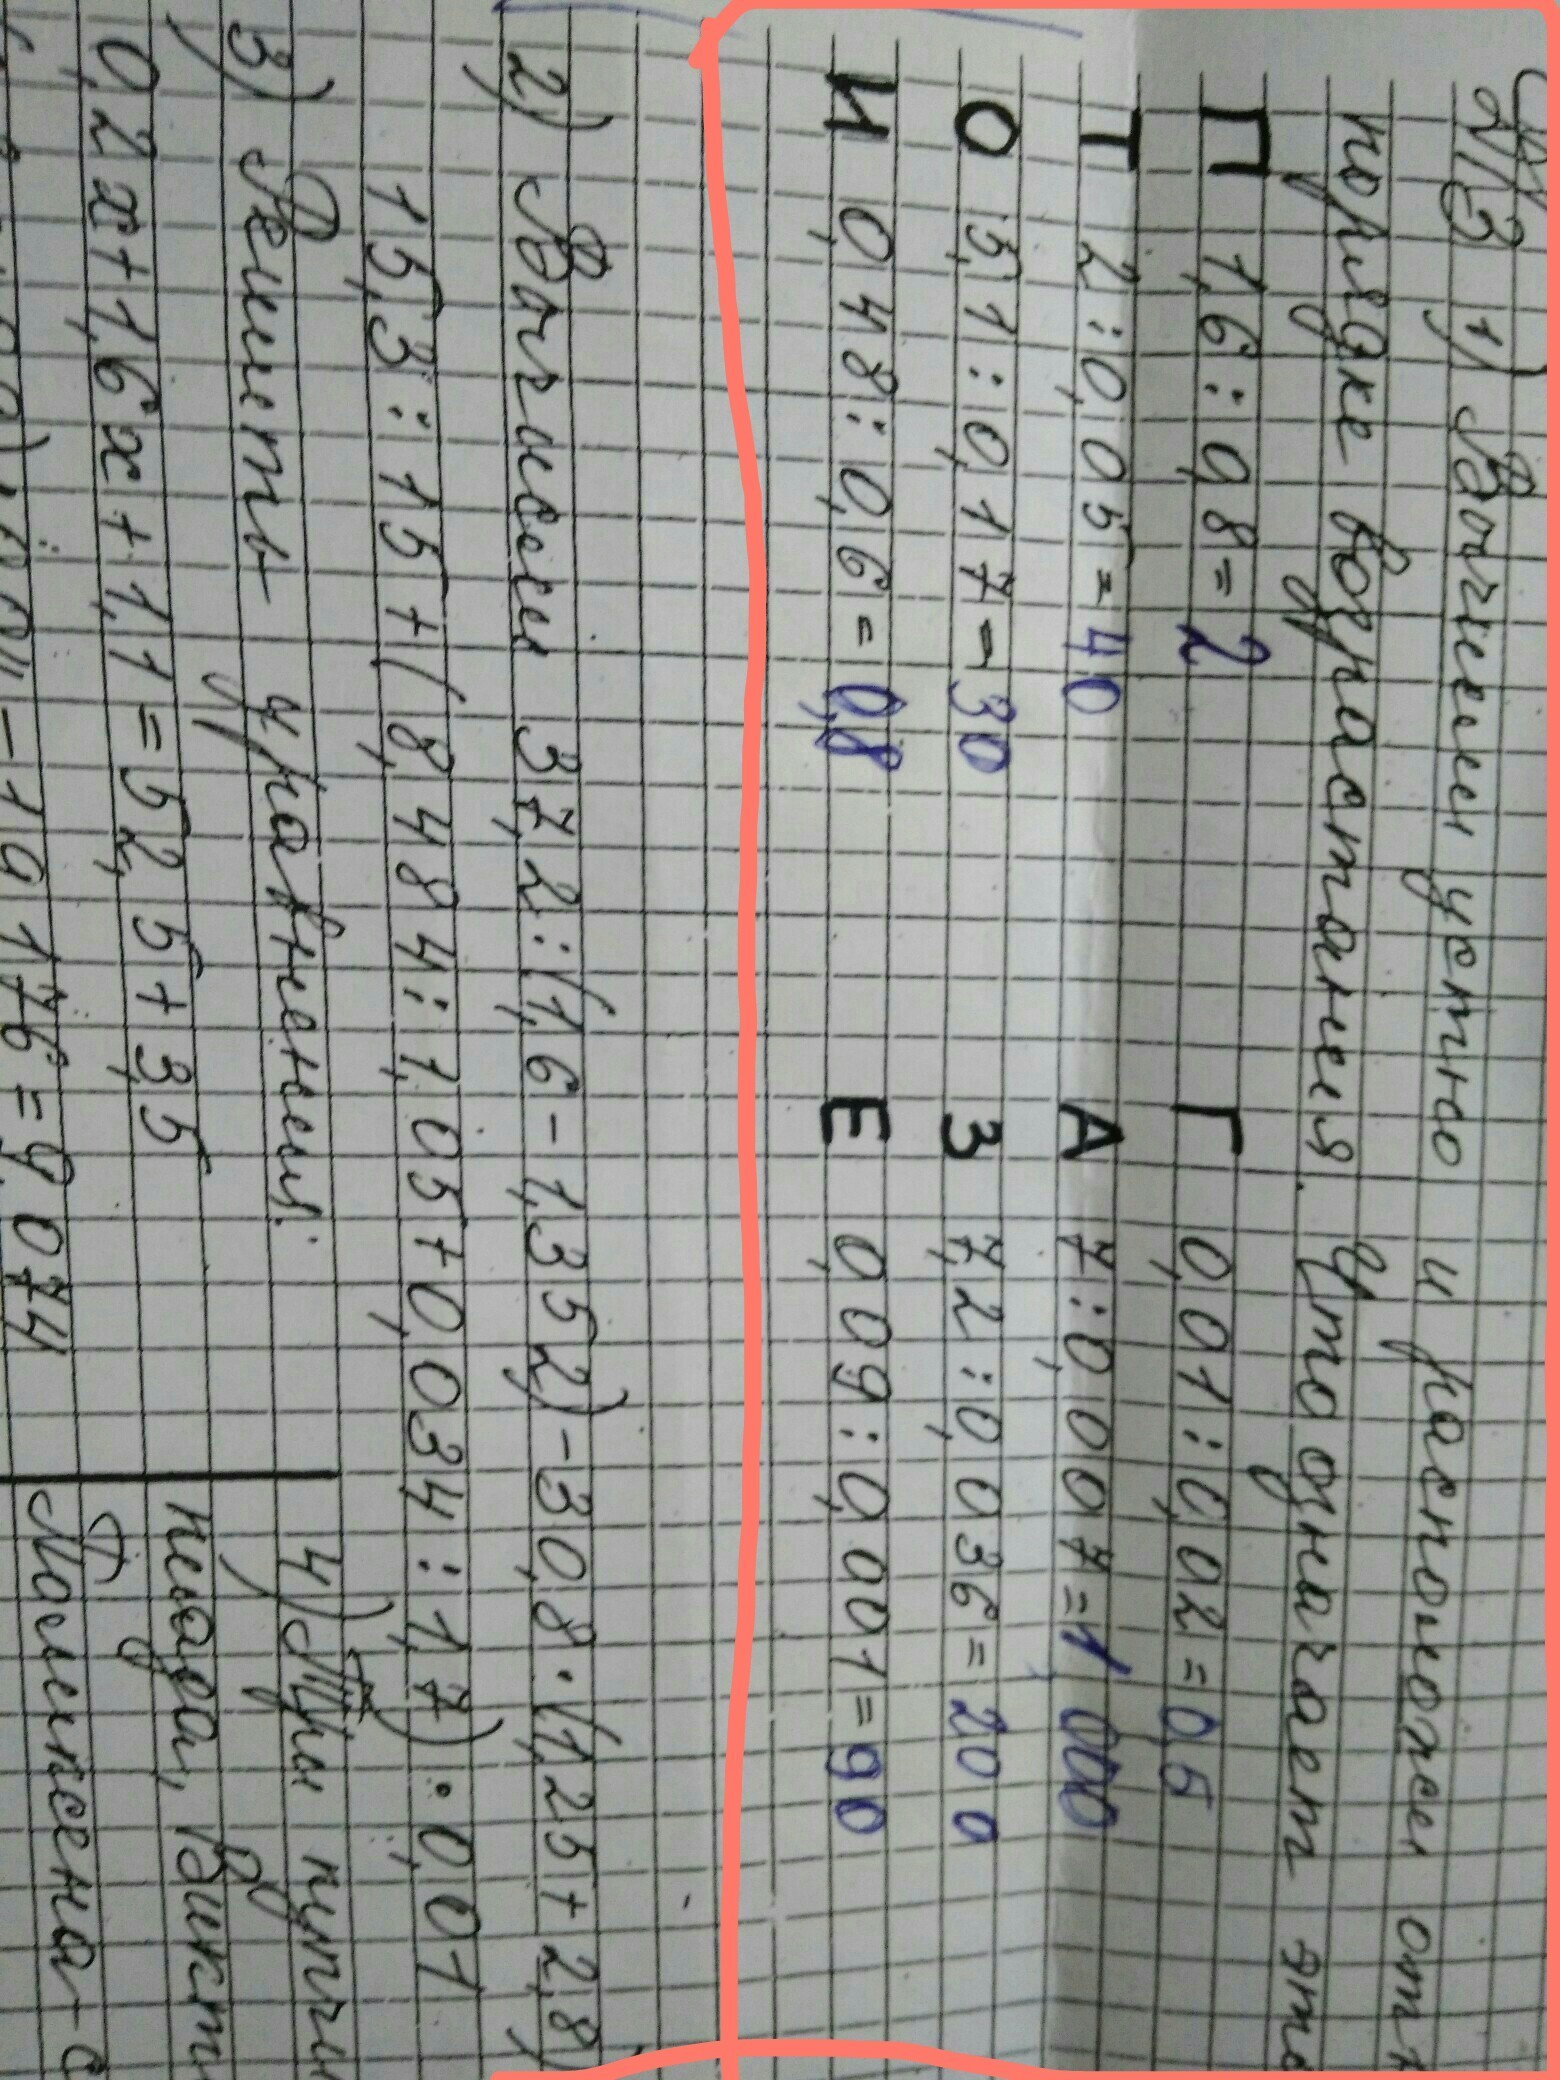 Д/З 1) Вычисли устно и расположи отв
порядке возрастания. Что означает это
П 1,6:0,8=2
Г 0,01:0,02=0,5
Т 2:0,05=40
А 7:0,007=1000
О 5,1:0,17=30
З 7,2:0,036=200
И 0,48:0,6=0,8
Е 0,09:0,001=90
2) Вычисли 37,2:(1,6-1,352)-30,8·(1,25+2,8)
15,3:15+(8,484:1,05+0,034:1,7):0,01
3) Решить уравнения:
0,2х+1,6х+1,1=52,5+3,5
-19,176=9,074
4) Три купчи
Маленькена-